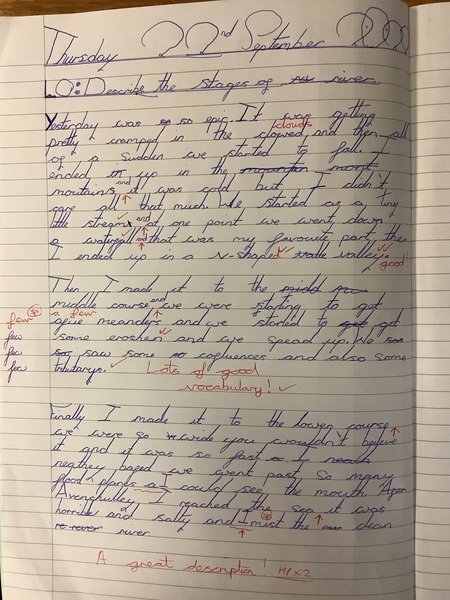 Thursday 22nd September 2022
L.O: Describe the stages of a river.
Yesterday was so epic. It was getting
clouds
pretty cramped in the clowed, and then all
of a sudden we started to fall. I
ended up in the mountain
and
moutains it was cold but I didn't
care all that much. We started as a tiny
little stream and at one point we went down
a waterfall and that was my favourite part then
I ended up in a V-shaped valley. good
Then I made it to the midd
middle course and we were stating to get
few sp a few
few meanders and we started to get
few some eroshein and we spead up. We
few saw some cofluences and also some
few tributarys.
Lots of good
vocabulary!
Finally I made it to the lower course
we were so wide you wouldn't believe
it and it was so fast I
we went past so many
flood plands I could see the mouth.
I reached the sea it was
and salty and I mist the clean
sp
river.
A great description! HP x2